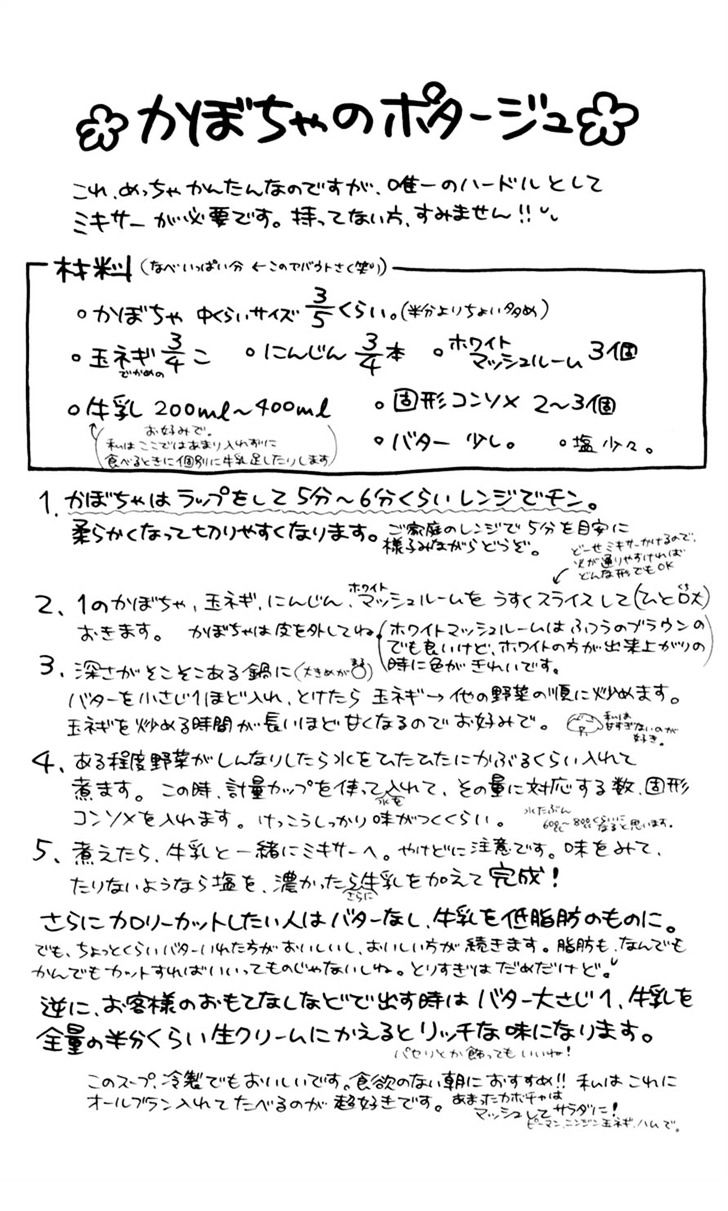 かぼちゃのポタージュ
これ、めっちゃかんたんなのですが、唯一のハードルとして
ミキサーが必要です。持ってない方、すみません!!
材料(なべいっぱい分 ←このでバウトさく笑)
○かぼちゃ 中くらいサイズ 3/5くらい。(半分よりちょい多め)
○玉ネギ 3/4こ ○にんじん 3/4本 ○ホワイトマッシュルーム 3個
でかめの
○牛乳 200ml〜400ml ○固形コンソメ 2〜3個
お好みで。
私はここではあまり入れずに
食べるときに個別に牛乳足したりします
○バター 少し。 ○塩少々。
1. かぼちゃはラップをして5分〜6分くらいレンジでチン。
柔らかくなって切りやすくなります。ご家庭のレンジで5分を目安に
様子みながらどうぞ。
どーせミキサーかけるので、
火が通りやすければ
どんな形でもOK
2、1のかぼちゃ、玉ネギ、にんじん、ホワイトマッシュルームをうすくスライスして(ひと口大)
おきます。 かぼちゃは皮を外してね
(ホワイトマッシュルームはふつうのブラウンの
でも良いけど、ホワイトの方が出来上がりの
時に色がきれいです。)
3、深さがそこそこある鍋に(大きめが吉)
バターを小さじ1ほど入れ、とけたら 玉ネギ→他の野菜の順に炒めます。
玉ネギを炒める時間が長いほど甘くなるのでお好みで。
私は
甘すぎないのが
好き。
4、ある程度野菜がしんなりしたら水をひたひたにかぶるくらい入れて
煮ます。この時、計量カップを使って水を入れて、その量に対応する数、固形
コンソメを入れます。けっこうしっかり味がつくくらい。
水たぶん
600cc〜800ccくらいに
なると思います。
5、煮えたら、牛乳と一緒にミキサーへ。やけどに注意です。味をみて、
たりないようなら塩を、濃かったらさらに牛乳を加えて完成!
さらにカロリーカットしたい人はバターなし、牛乳を低脂肪のものに。
でも、ちょっとくらいバターいれた方がおいしいし、おいしい方が続きます。脂肪も、なんでも
かんでもカットすればいいってものじゃないしね。とりすぎはだめだけど。
逆に、お客様のおもてなしなどで出す時はバター大さじ1、牛乳を
全量の半分くらい生クリームにかえるとリッチな味になります。
パセリとか飾ってもいいね!
このスープ、冷製でもおいしいです。食欲のない朝におすすめ!! 私はこれに
オールブラン入れてたべるのが超好きです。
あまったカボチャは
マッシュしてサラダに!
ピーマン、ニンジン、玉ネギ、ハムで。